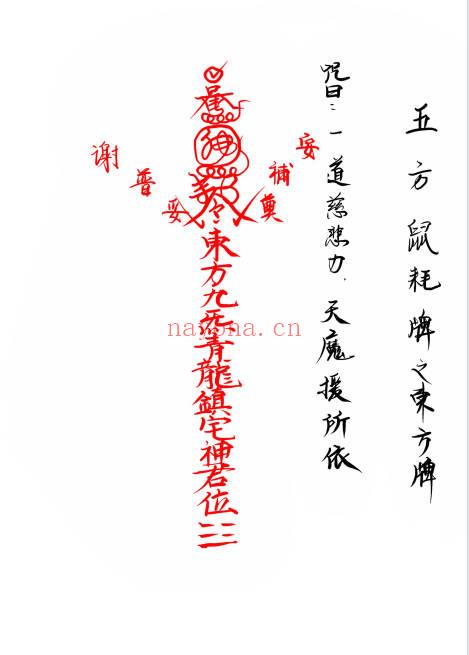 五方鼠耗牌之東方牌
咒曰：一道慈悲力．天魔援所依
安補奠
令東方九炁青龍鎮宅神君位
謝普妥
nayona.cn